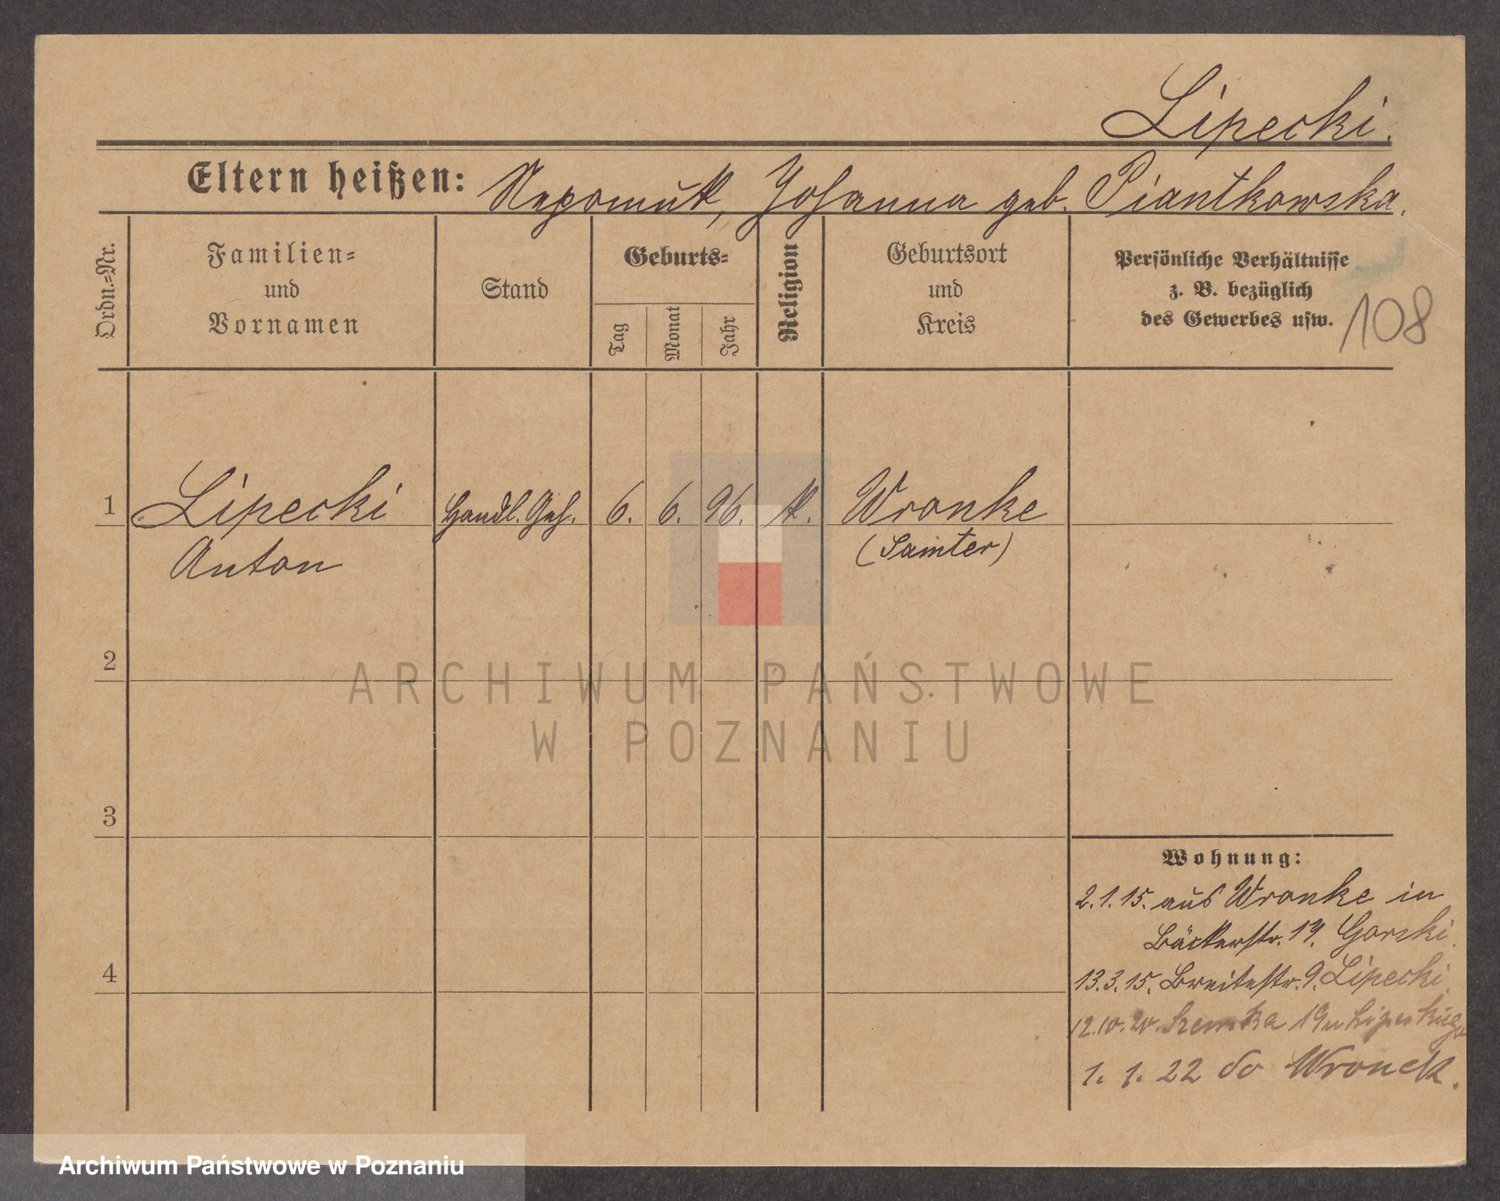 Lipecki.
Eltern heißen: Nepomuk, Johanna geb. Piantkowska.
Ordn.-Nr.
Familien-
und
Vornamen
Stand
Geburts-
Tag
Monat
Jahr
Religion
Geburtsort
und
Kreis
Persönliche Verhältnisse
z. B. bezüglich
des Gewerbes usw.
108
1 Lipecki Handl. Geh. 6. 6. 96. k. Wronke
Anton (Samter)
2
ARCHIWUM PAŃSTWOWE
W POZNANIU
3
Wohnung:
2.1.15. aus Wronke in
Bäckerstr. 19. Gorski.
4
13.3.15. Breitestr. 9. Lipecki.
12.10.20. 19
1. 1. 22 do Wronek.
Archiwum Państwowe w Poznaniu